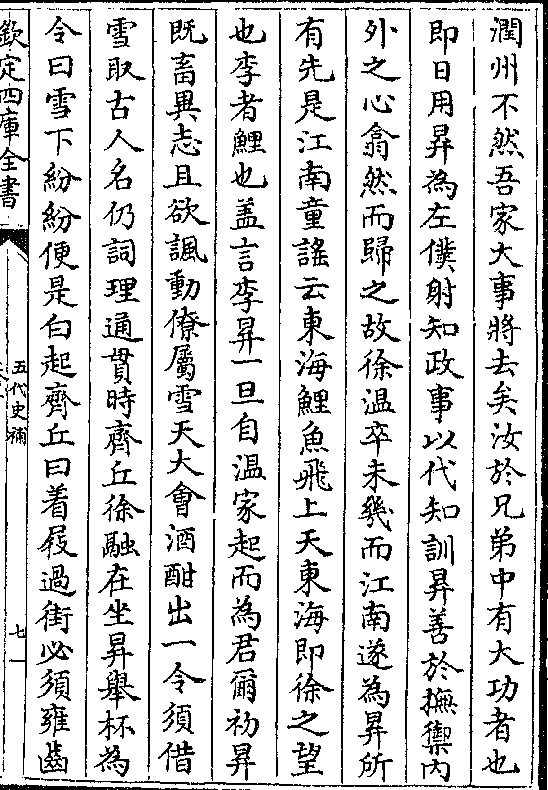 潤州不然吾家大事將去矣汝於兄弟中有大功者也
即日用昇為左僕射知政事以代知訓昇善於撫禦内
外之心翕然而歸之故徐温卒未幾而江南遂為昇所
有先是江南童謡云東海鯉魚飛上天東海即徐之望
也李者鯉也盖言李昇一旦自温家起而為君爾初昇
既畜異志且欲諷動僚屬雪天大會酒酣出一令須借
雪取古人名仍詞理通貫時齊丘徐融在坐昇舉杯為
令曰雪下紛紛便是白起齊丘曰着屐過街必須雍齒
欽定四庫全書
五代史補
七